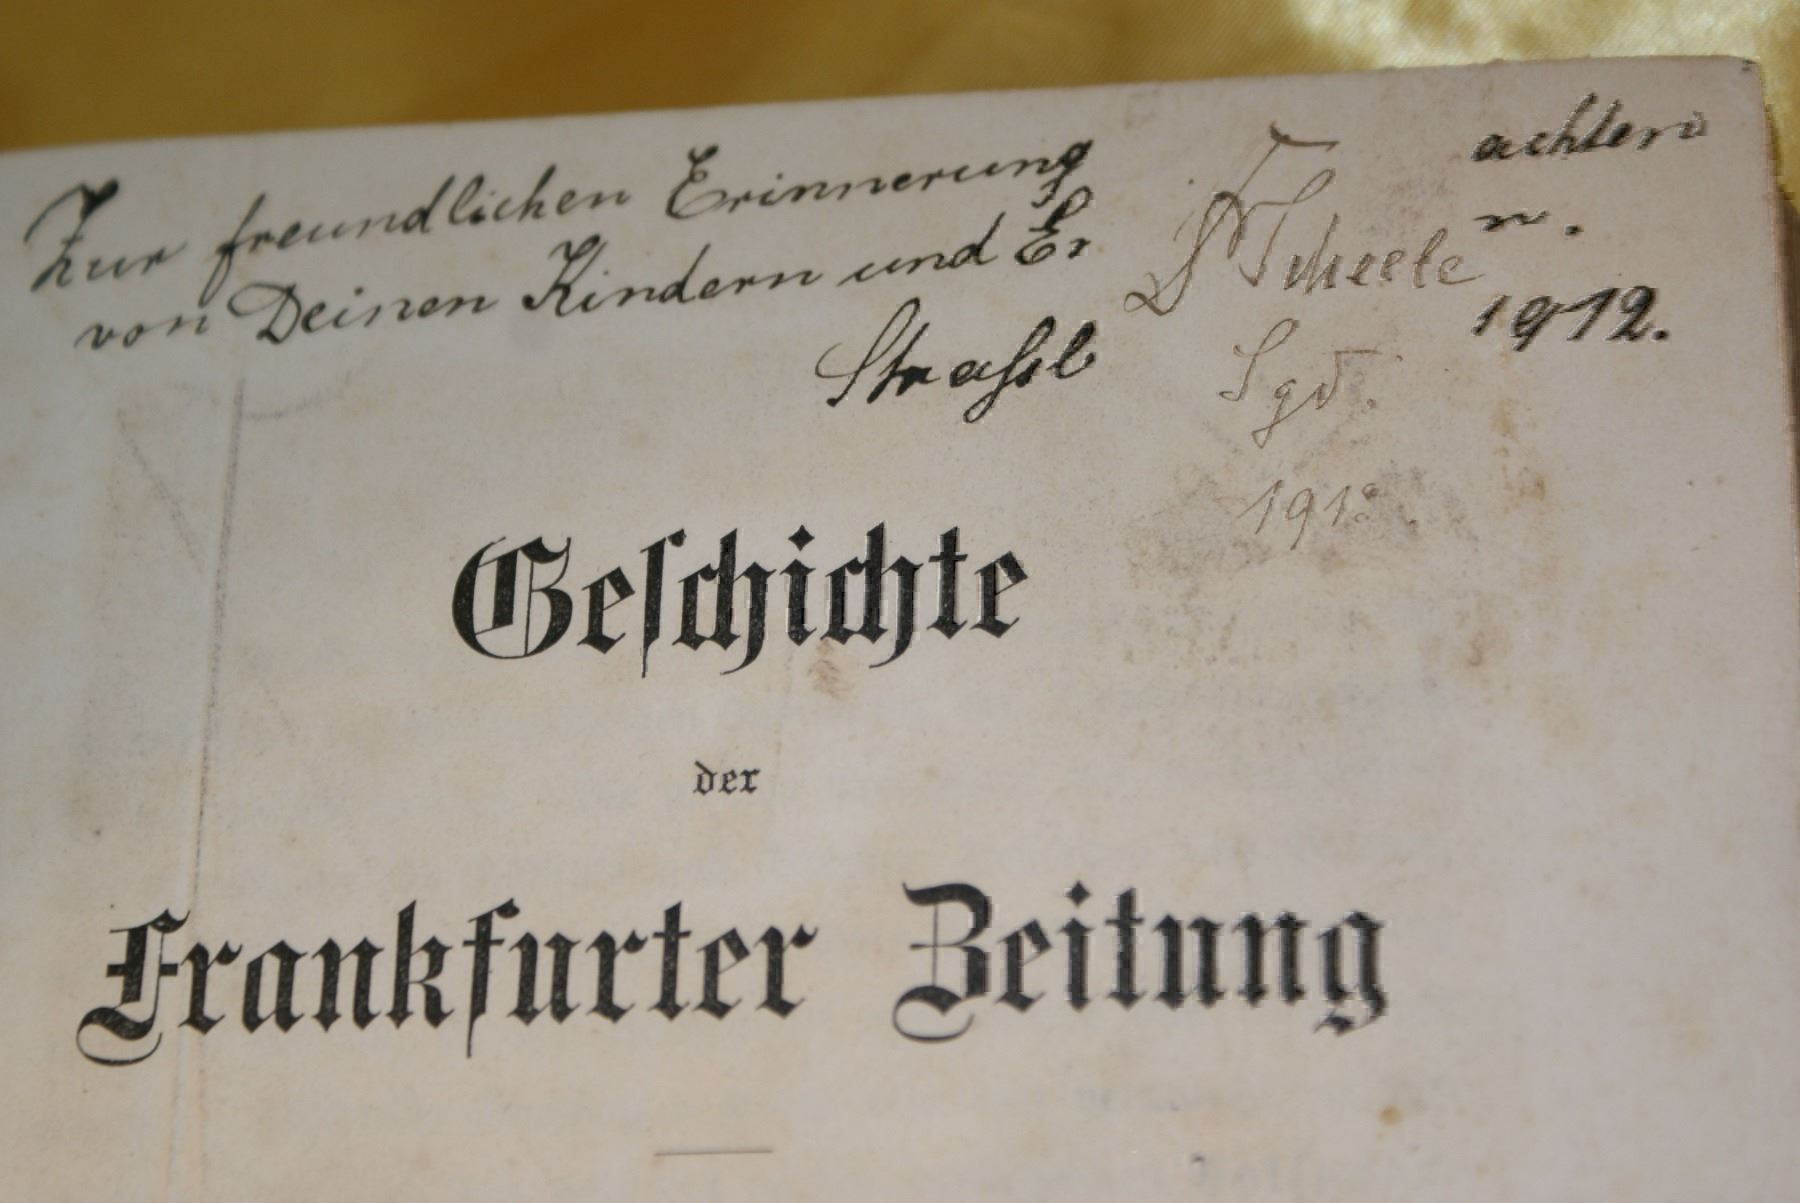 Zur freundlichen Erinnerung
von Deinen Kindern und Er
Strassb
achten
n.
1912.
Dr Scheele
Sgd.
191
Geschichte
der
Frankfurter Zeitung